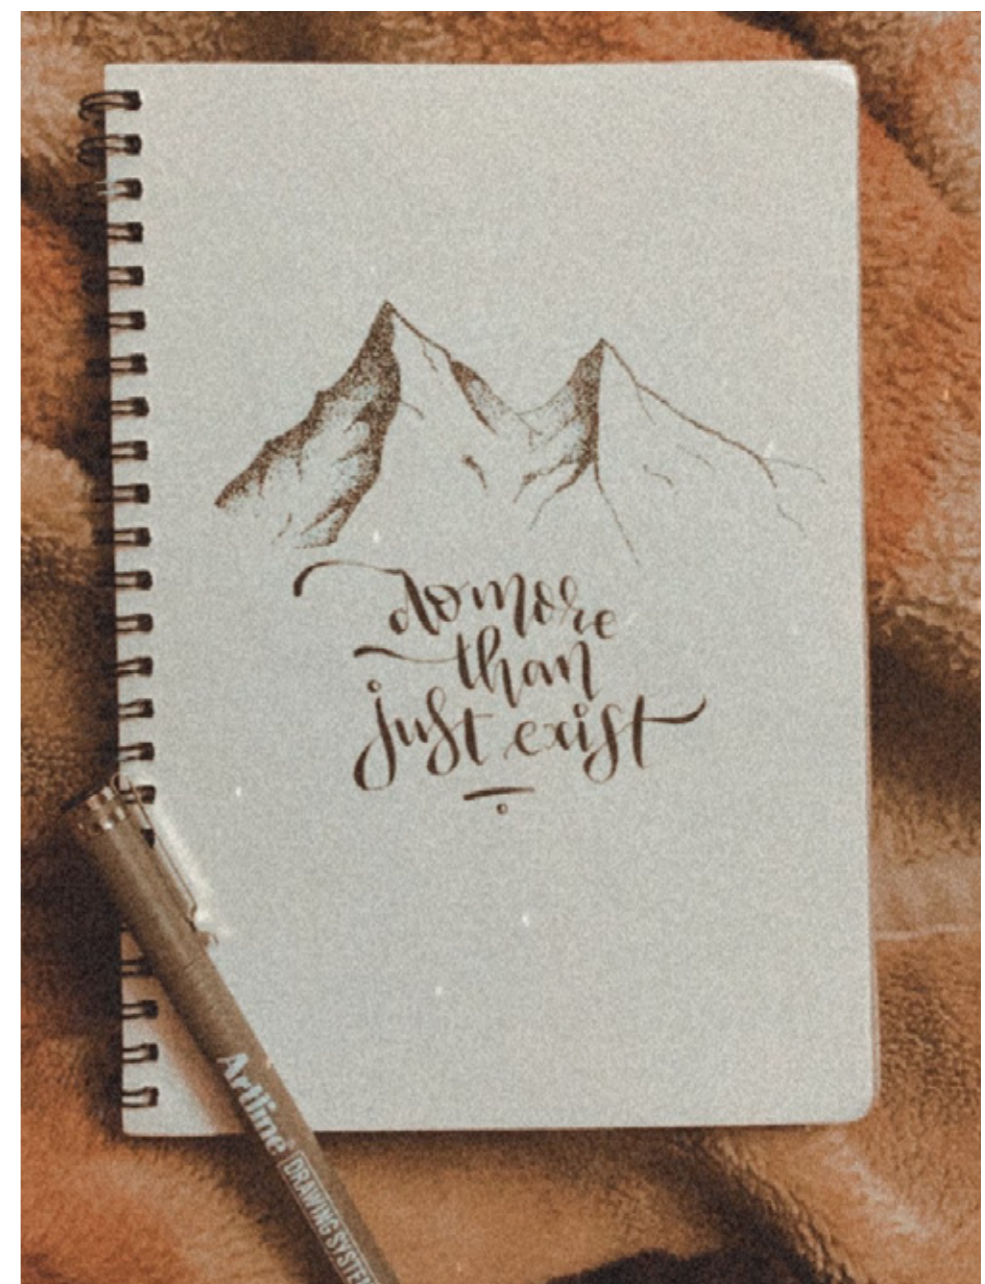 do more
than
just exist
Artline DRAWING SYSTEM